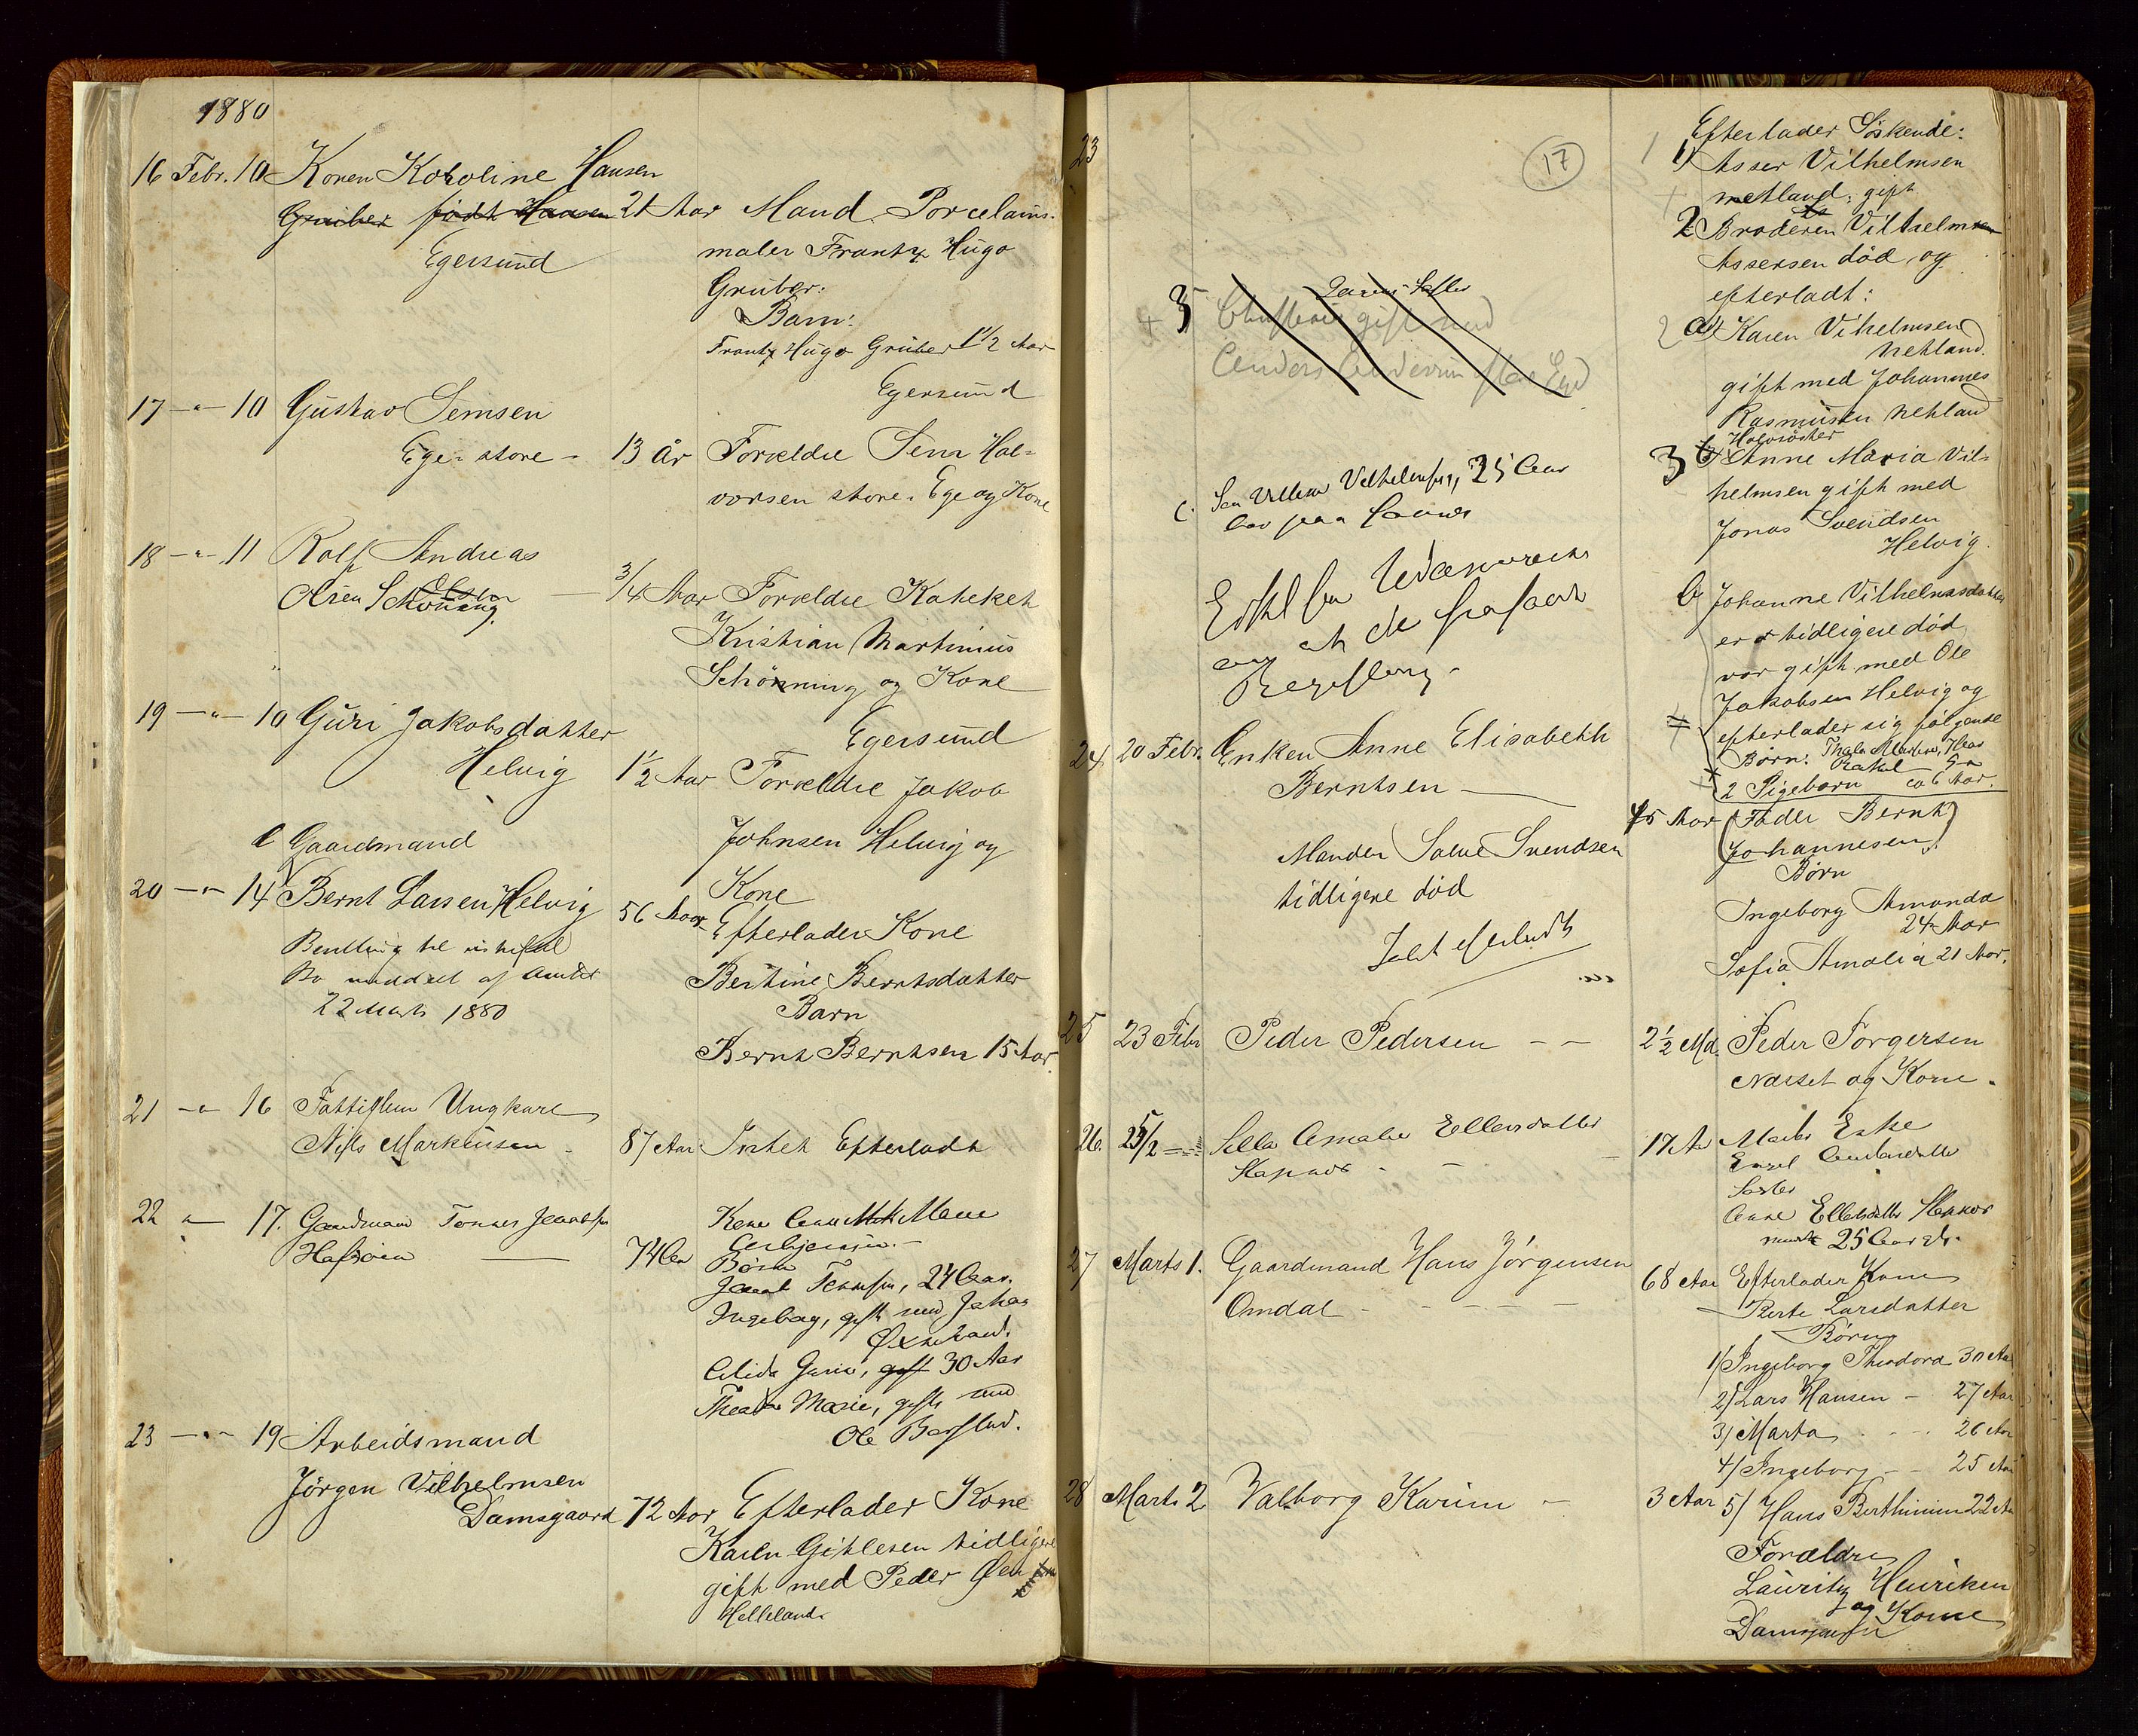 1880
16 Febr. 10 Konen Karoline Hansen
Gruber født Hansen 21 Aar Mand Porcelains-
Egersund maler Frantz Hugo
Gruber.
Barn:
Frantz Hugo Gruber 1 1/2 Aar
Egersund
17 -"- 10 Gustav Semsen
Ege. store - 13 År Forældre Sem Hal-
vorsen store. Ege og Kone
18 -"- 11 Rolf Andreas
Olsen Schönning 3/4 Aar Forældre Kateket
Kristian Martinius
Schönning og Kone
Egersund
19 -"- 10 Guri Jakobsdatter
Helvig 1 1/2 Aar Forældre Jakob
Johnsen Helvig og
Kone
Gaardmand
20 -"- 14 Bernt Larsen Helvig 56 Aar Efterlader Kone
Bevilling til uskiftet
Bo meddelt af Amtet
22 Marts 1880
Bertine Berntsdatter
Barn
Bernt Berntsen 15 Aar.
21 -"- 16 Fattiglem Ungkarl
Nils Markussen - 87 Aar Intet Efterladt
22 " 17. Gaardmand Tønnes Jacobsen
Hafsøen 74 Aar
Kone Anne Marie
Asbjørnsen.-
Børn
Jacob Tønnesen, 24 Aar.
Ingeborg, gift med Johan
Øxnevad.
Elida Gurine, gift 30 Aar
Thea Marie, gift med
Ole Berglud.
23 -"- 19 Arbeidsmand
Jörgen Vilhelmsen
Damsgaard 72 Aar Efterlader Kone
Karen Gitlesen tidligere
gift med Peder Øen
Helleland.
23
17
3 Søster
gift med
Anders
c. Vilhelmsen, 25 Aar
Efterlader Søskende:
1) Asser Vilhelmsen
Netland, gift
2 Broderen Vilhelm
Assersen død og
efterladt:
2 a) Karen Vilhelmsen
Netland.
gift med Johannes
Rasmussen Netland
Halvsöster
3 b) Anne Maria Vil-
helmsen gift med
Jonas Svendsen
Helvig.
b Johanne Vilhelmsdatter
er tidligere död
var gift med Ole
Jakobsen Helvig og
efterlader sig følgende
Børn:
Rakel
2 Pigebørn ca 6 Aar.
24 20 Febr. Enken Anne Elisabeth
Berntsen
45 Aar (Fader Bernt
Johannesen)
Manden Salve Svendsen
tidligere död
Intet efterladt
Børn
Ingeborg Amanda
24 Aar
Sofia Amalia 21 Aar.
25 23 Febr Peder Pedersen - - 2 1/2 Md. Peder Torgersen
Nærset og Kone.
26. 25/2 Sella Amalie Ellersdatter
Stapnes - - 17 Aar Moder Enke
Engel Andersdatter
Søster
Anne Ellertsdatter Stapnes
25 Aar
27 Marts 1. Gaardmand Hans Jörgensen
Omdal - - - 68 Aar Efterlader Kone
Berte Larsdatter
Børn
1/ Ingeborg Theodora 30 Aar
2/ Lars Hansen - 27 Aar
3/ Marta - - 26 Aar
4/ Ingeborg - - 25 Aar
5/ Hans Berthinius 22 Aar
28 Marts 2 Valborg Karine - 3 Aar
Forældre
Lauritz Henriksen
og Kone
Damsgaard